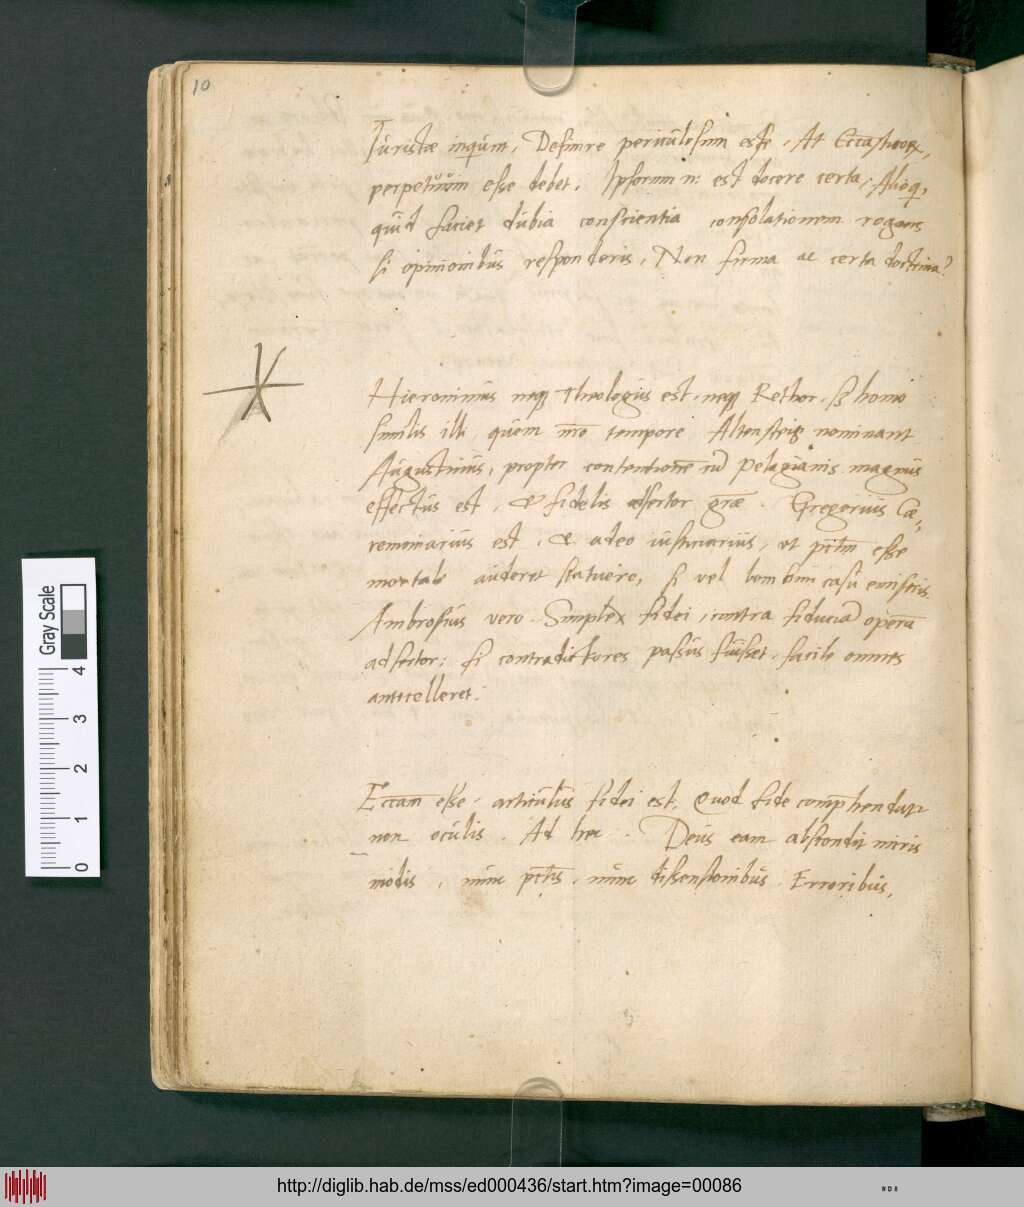 10
Iuristæ inquiunt, Definire periculosum esse. At Eccłasticorum,
perpetuum esse debet, Ipsorum n: est docere certa, Alioq,
quid faciet dubia conscientia consolationem rogans
si opinionibus responderis, Non firma ac certa doctrina?
Hieronimus neq theologus est, neq Rethor, sz homo
similis illi, quem nro tempore Altensteig nominant
Augustinus, propter contentionē cū pelagianis magnus
effectus est, & fidelis adsertor græ. Gregorius Cæ-
remoniarius est, & adeo iusticiarius, vt pctm esse
mortale auderet statuere, si vel bombum casu emiseris.
Ambrosius vero Simplex fidei, contra fiduciā operū
adsertor: si contradictores passus fuisset, facile omnes
antecelleret.
Eccam esse articulus fidei est, Quod fide comphendatr
non oculis. Ad hec. Deus eam abscondit miris
modis, nunc pctis, nunc dissensionibus Erroribus,
Gray Scale
0 1 2 3 4
http://diglib.hab.de/mss/ed000436/start.htm?image=00086